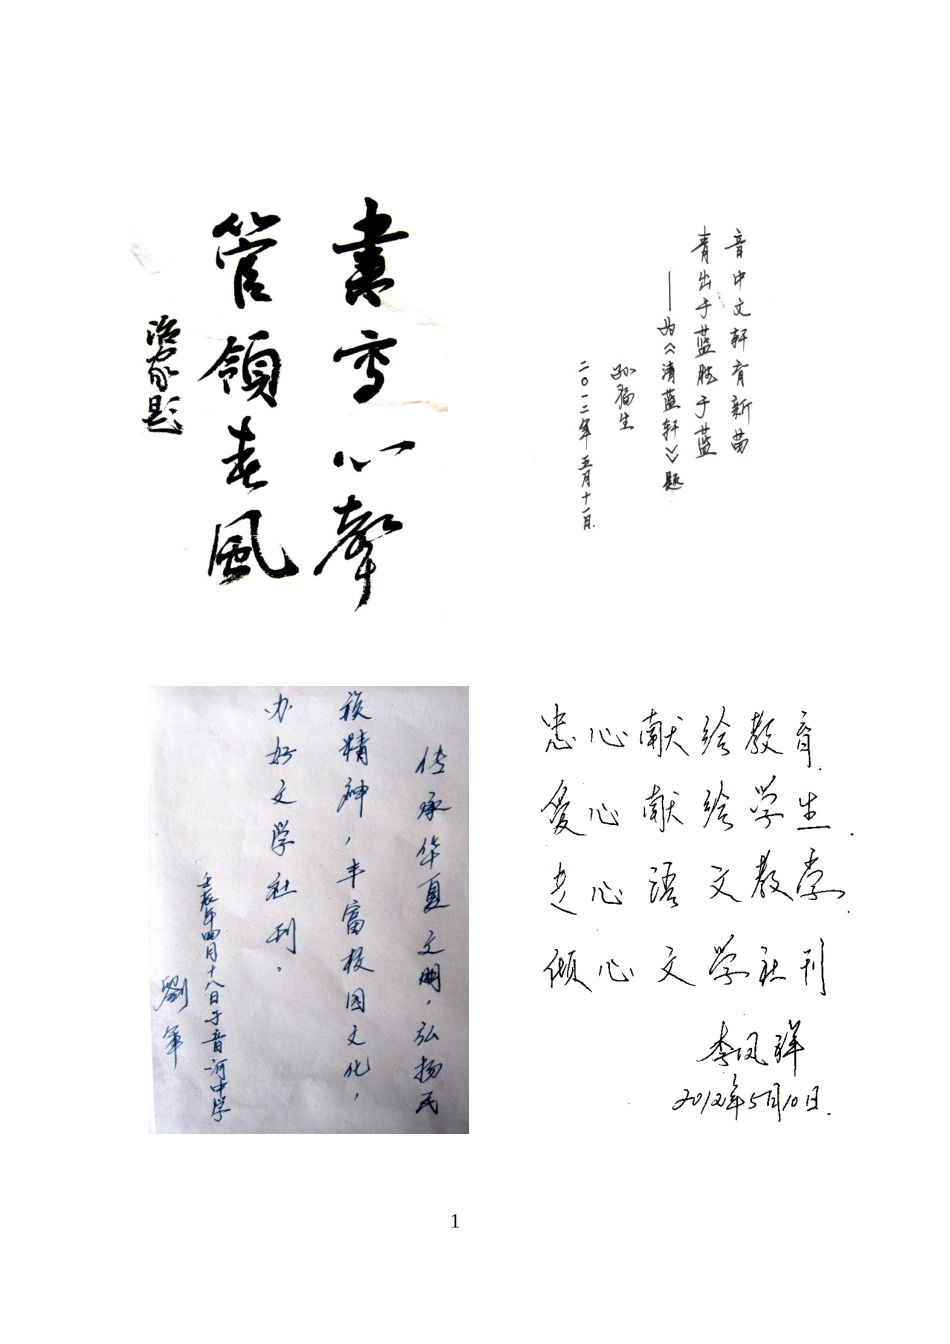 書寫心聲
管領春風
治家题
音中文轩育新苗
青出于蓝胜于蓝
——为《清蓝轩》题
孙福生
二〇一二年五月十一日.
传承华夏文明，弘扬民
族精神，丰富校园文化，
办好文学社刊。
壬辰年四月十八日于音河中学
劉军
忠心献给教育.
爱心献给学生.
走心语文教学.
倾心文学社刊
李凤祥
2012年5月10日.
1